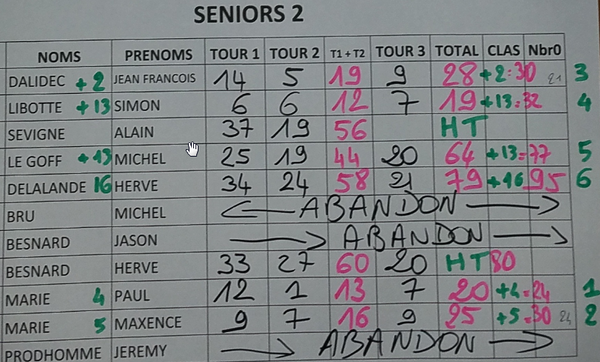 SENIORS 2
NOMS PRENOMS TOUR 1 TOUR 2 T1 + T2 TOUR 3 TOTAL CLAS Nbr0
DALIDEC +2 JEAN FRANCOIS 14 5 19 9 28 +2=30 21 3
LIBOTTE +13 SIMON 6 6 12 7 19 +13=32 4
SEVIGNE ALAIN 37 19 56 HT
LE GOFF +13 MICHEL 25 19 44 20 64 +13=77 5
DELALANDE 16 HERVE 34 24 58 21 79 +16 95 6
BRU MICHEL ABANDON
BESNARD JASON ABANDON
BESNARD HERVE 33 27 60 20 HT 80
MARIE 4 PAUL 12 1 13 7 20 +4=24 1
MARIE 5 MAXENCE 9 7 16 9 25 +5=30 24 2
PRODHOMME JEREMY ABANDON